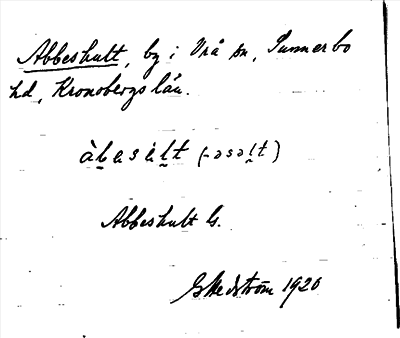 Abbeshult, by i Vrå sn, Sunnerbo
hd, Kronobergs län.
àbesàlt (-əsəlt)
Abbeshult G.
GHedström 1920